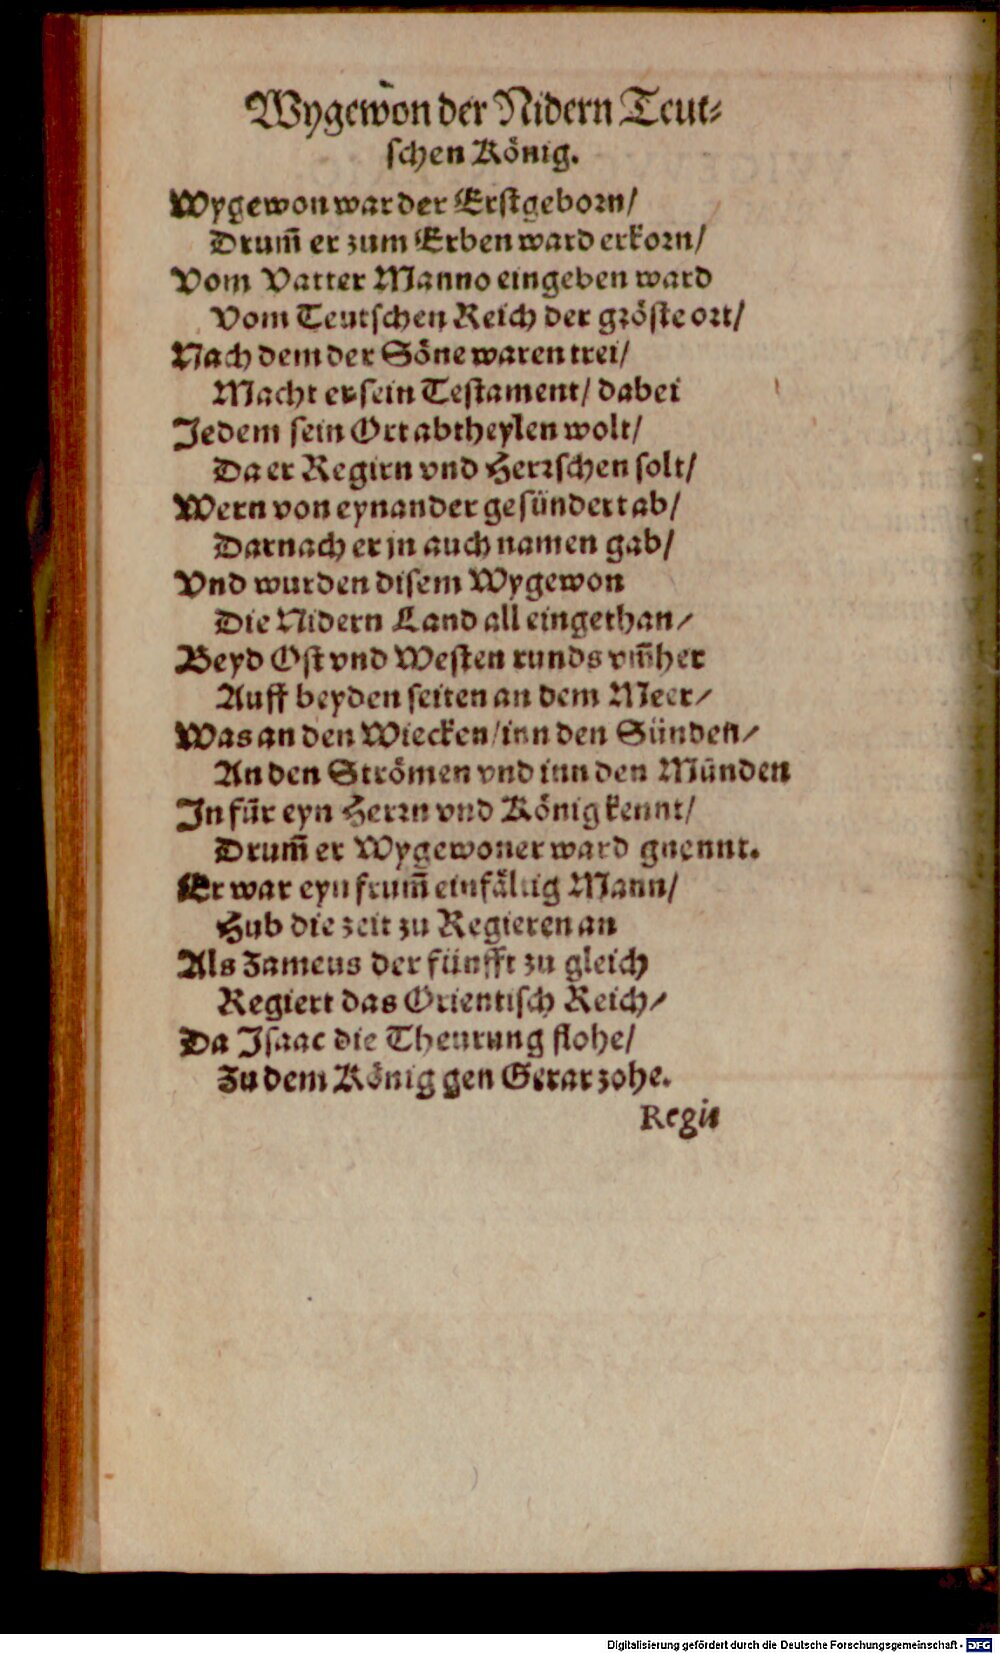 Wygewon der Nidern Teut⸗
schen König.
Wygewon war der Erstgeborn/
Drum̃ er zum Erben ward erkorn/
Vom Vatter Manno eingeben ward
Vom Teutschen Reich der gröste ort/
Nach dem der Söne waren trei/
Macht er sein Testament/ dabei
Jedem sein Ort abtheylen wolt/
Da er Regirn vnd Herrschen solt/
Wern von eynander gesündert ab/
Darnach er jn auch namen gab/
Vnd wurden disem Wygewon
Die Nidern Land all eingethan/
Beyd Ost vnd Westen runds vm̃her
Auff beyden seiten an dem Meer/
Was an den Wiecken/ inn den Sünden/
An den Strömen vnd inn den Münden
Jn für eyn Herrn vnd König kennt/
Drum̃ er Wygewoner ward gnennt.
Er war eyn frum̃ einfältig Mann/
Hub die zeit zu Regieren an
Als Zameus der fünfft zu gleich
Regiert das Orientisch Reich/
Da Isaac die Theurung flohe/
Zu dem König gen Gerar zohe.
Regie
Digitalisierung gefördert durch die Deutsche Forschungsgemeinschaft - DFG